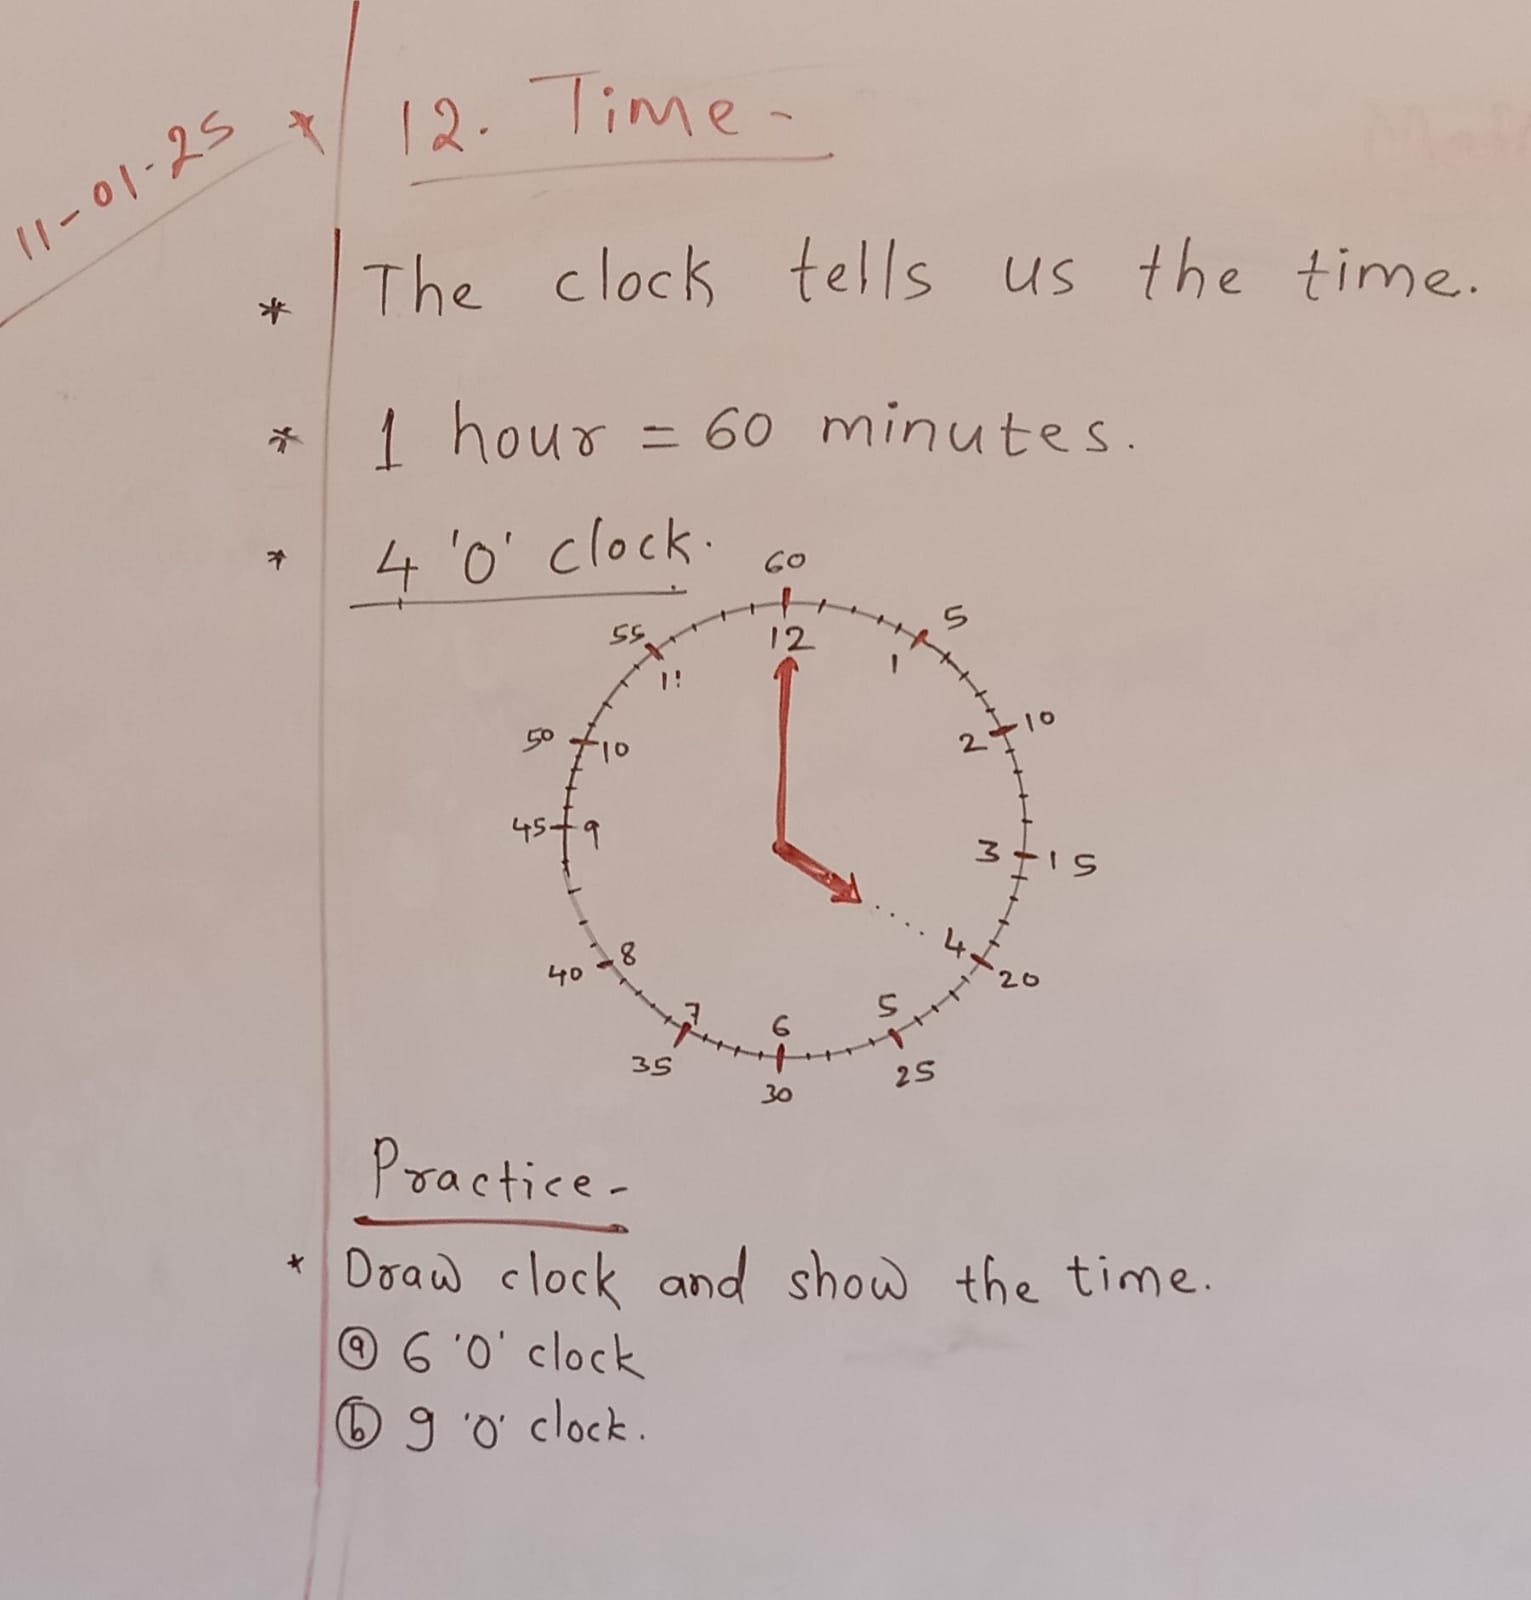 11-01-25 * 12. Time -
* The clock tells us the time.
* 1 hour = 60 minutes.
* 4 'O' clock.
60
12
5
1
10
2
15
3
20
4
25
5
30
6
35
7
40
8
45
9
50
10
55
11
Practice -
* Draw clock and show the time.
(a) 6 'O' clock
(b) 9 'O' clock.